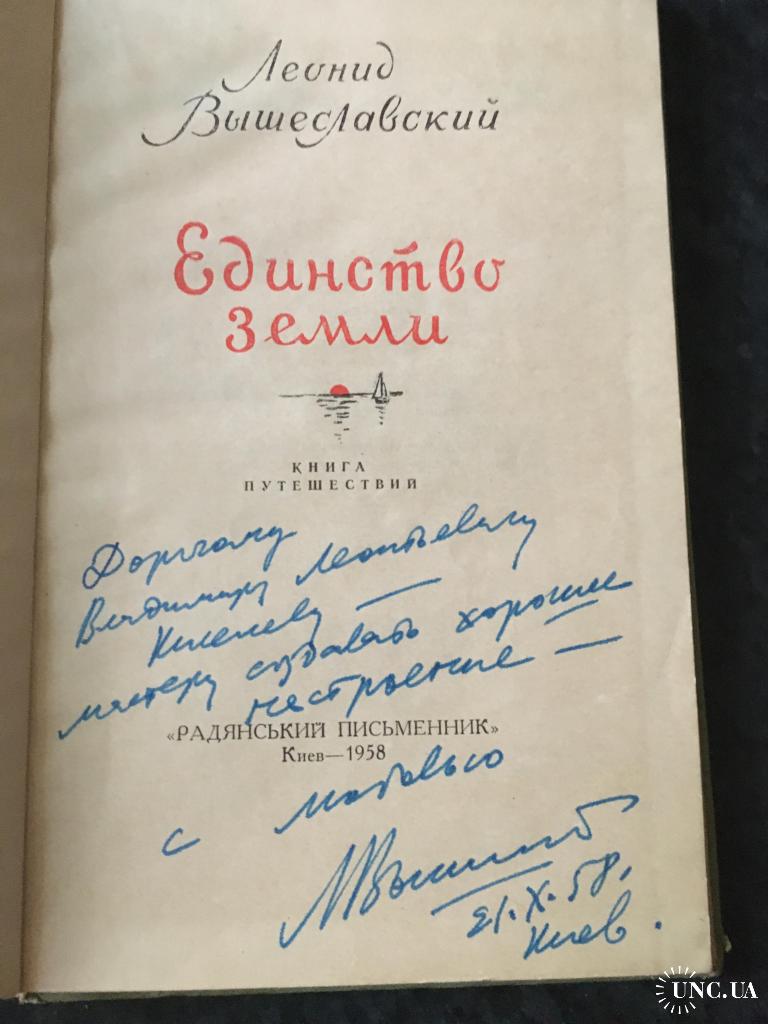 Леонид
Вышеславский
Единство
земли
КНИГА
ПУТЕШЕСТВИЙ
Дорогому
Владимиру Леонтьевичу
Киселеву —
мастеру создавать хорошее
настроение —
«РАДЯНСЬКИЙ ПИСЬМЕННИК»
Киев—1958
с любовью
21.X.58.
Киев.
UNC.UA